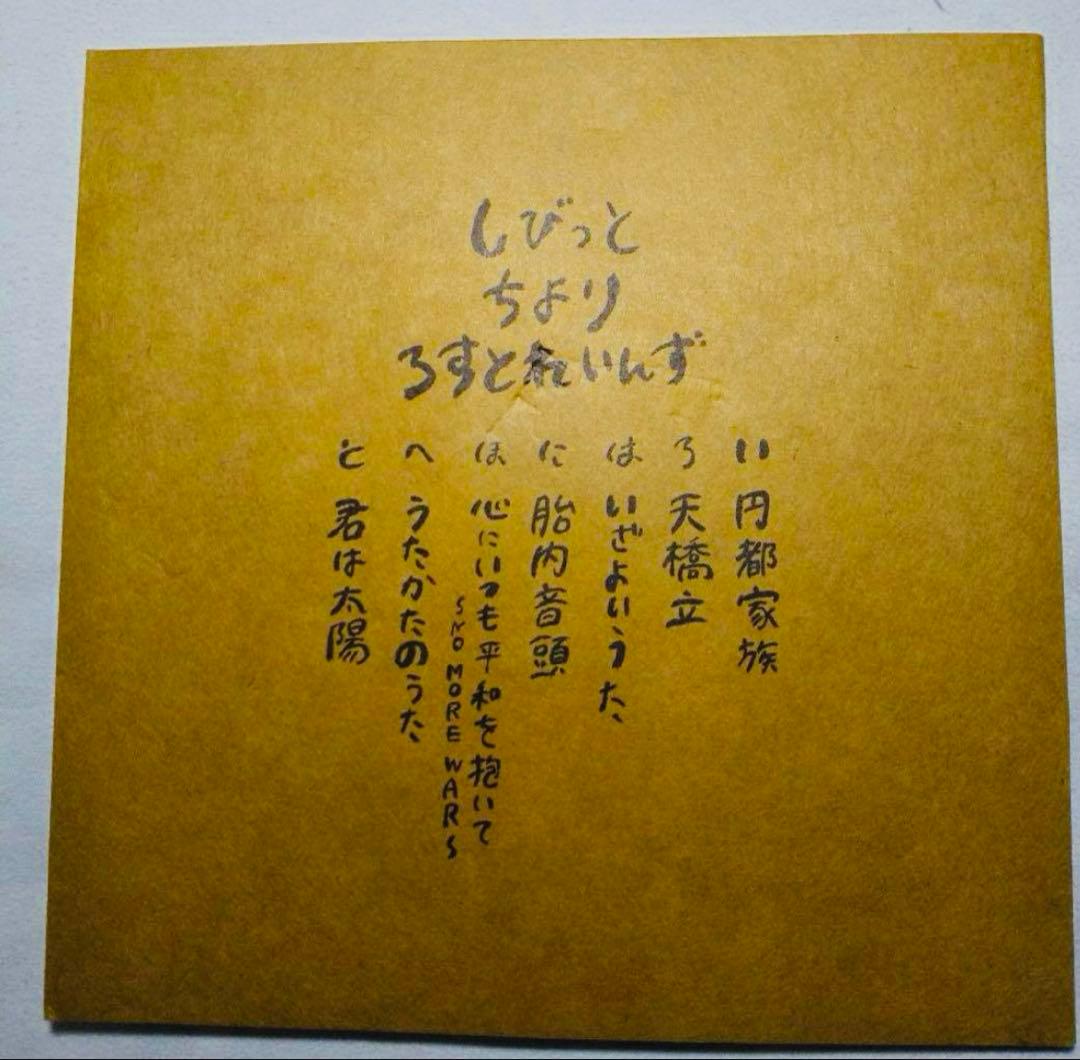 しびっと
ちより
ろすとれいんず
い 円都家族
ろ 天橋立
は いざよいうた
に 胎内音頭
ほ 心にいつも平和を抱いて
SNO MORE WARS
へ うたかたのうた
と 君は太陽